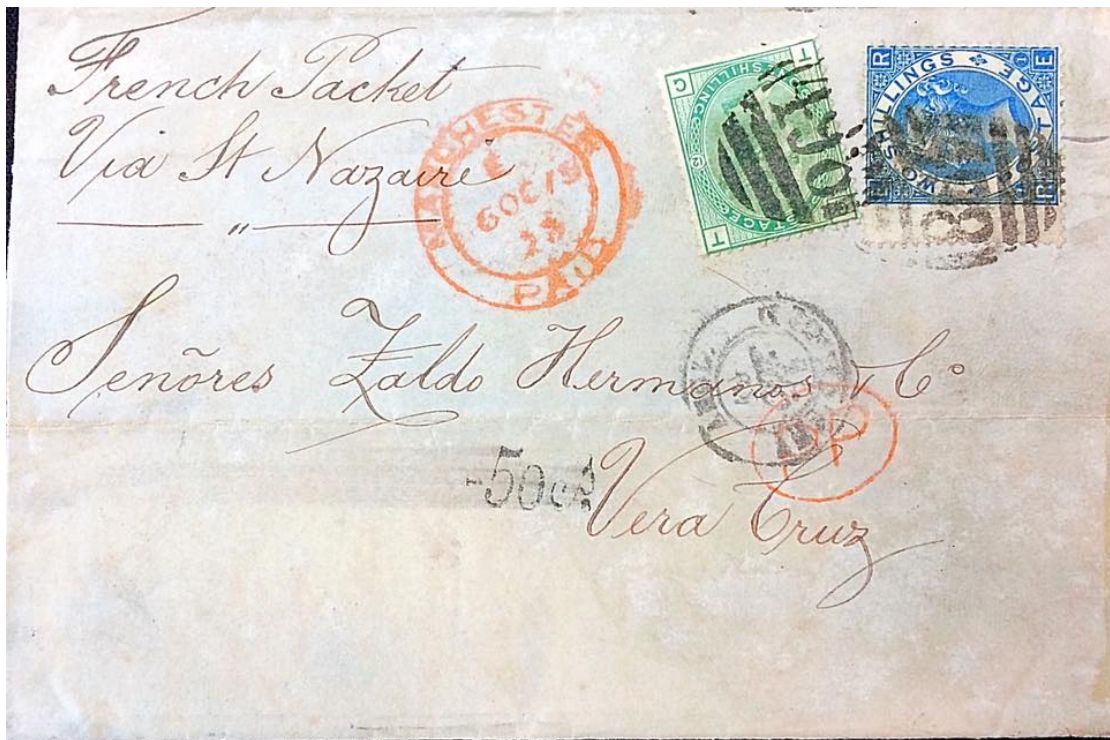 French Packet
Via St Nazaire
"
MANCHESTER
6 OC 19
74
PAID
T C
SHILLING
POSTAGE
C T
E R
TWO SHILLINGS
POSTAGE
R E
498
Señores Zaldo Hermanos & Co
PP
50 cs
Vera Cruz